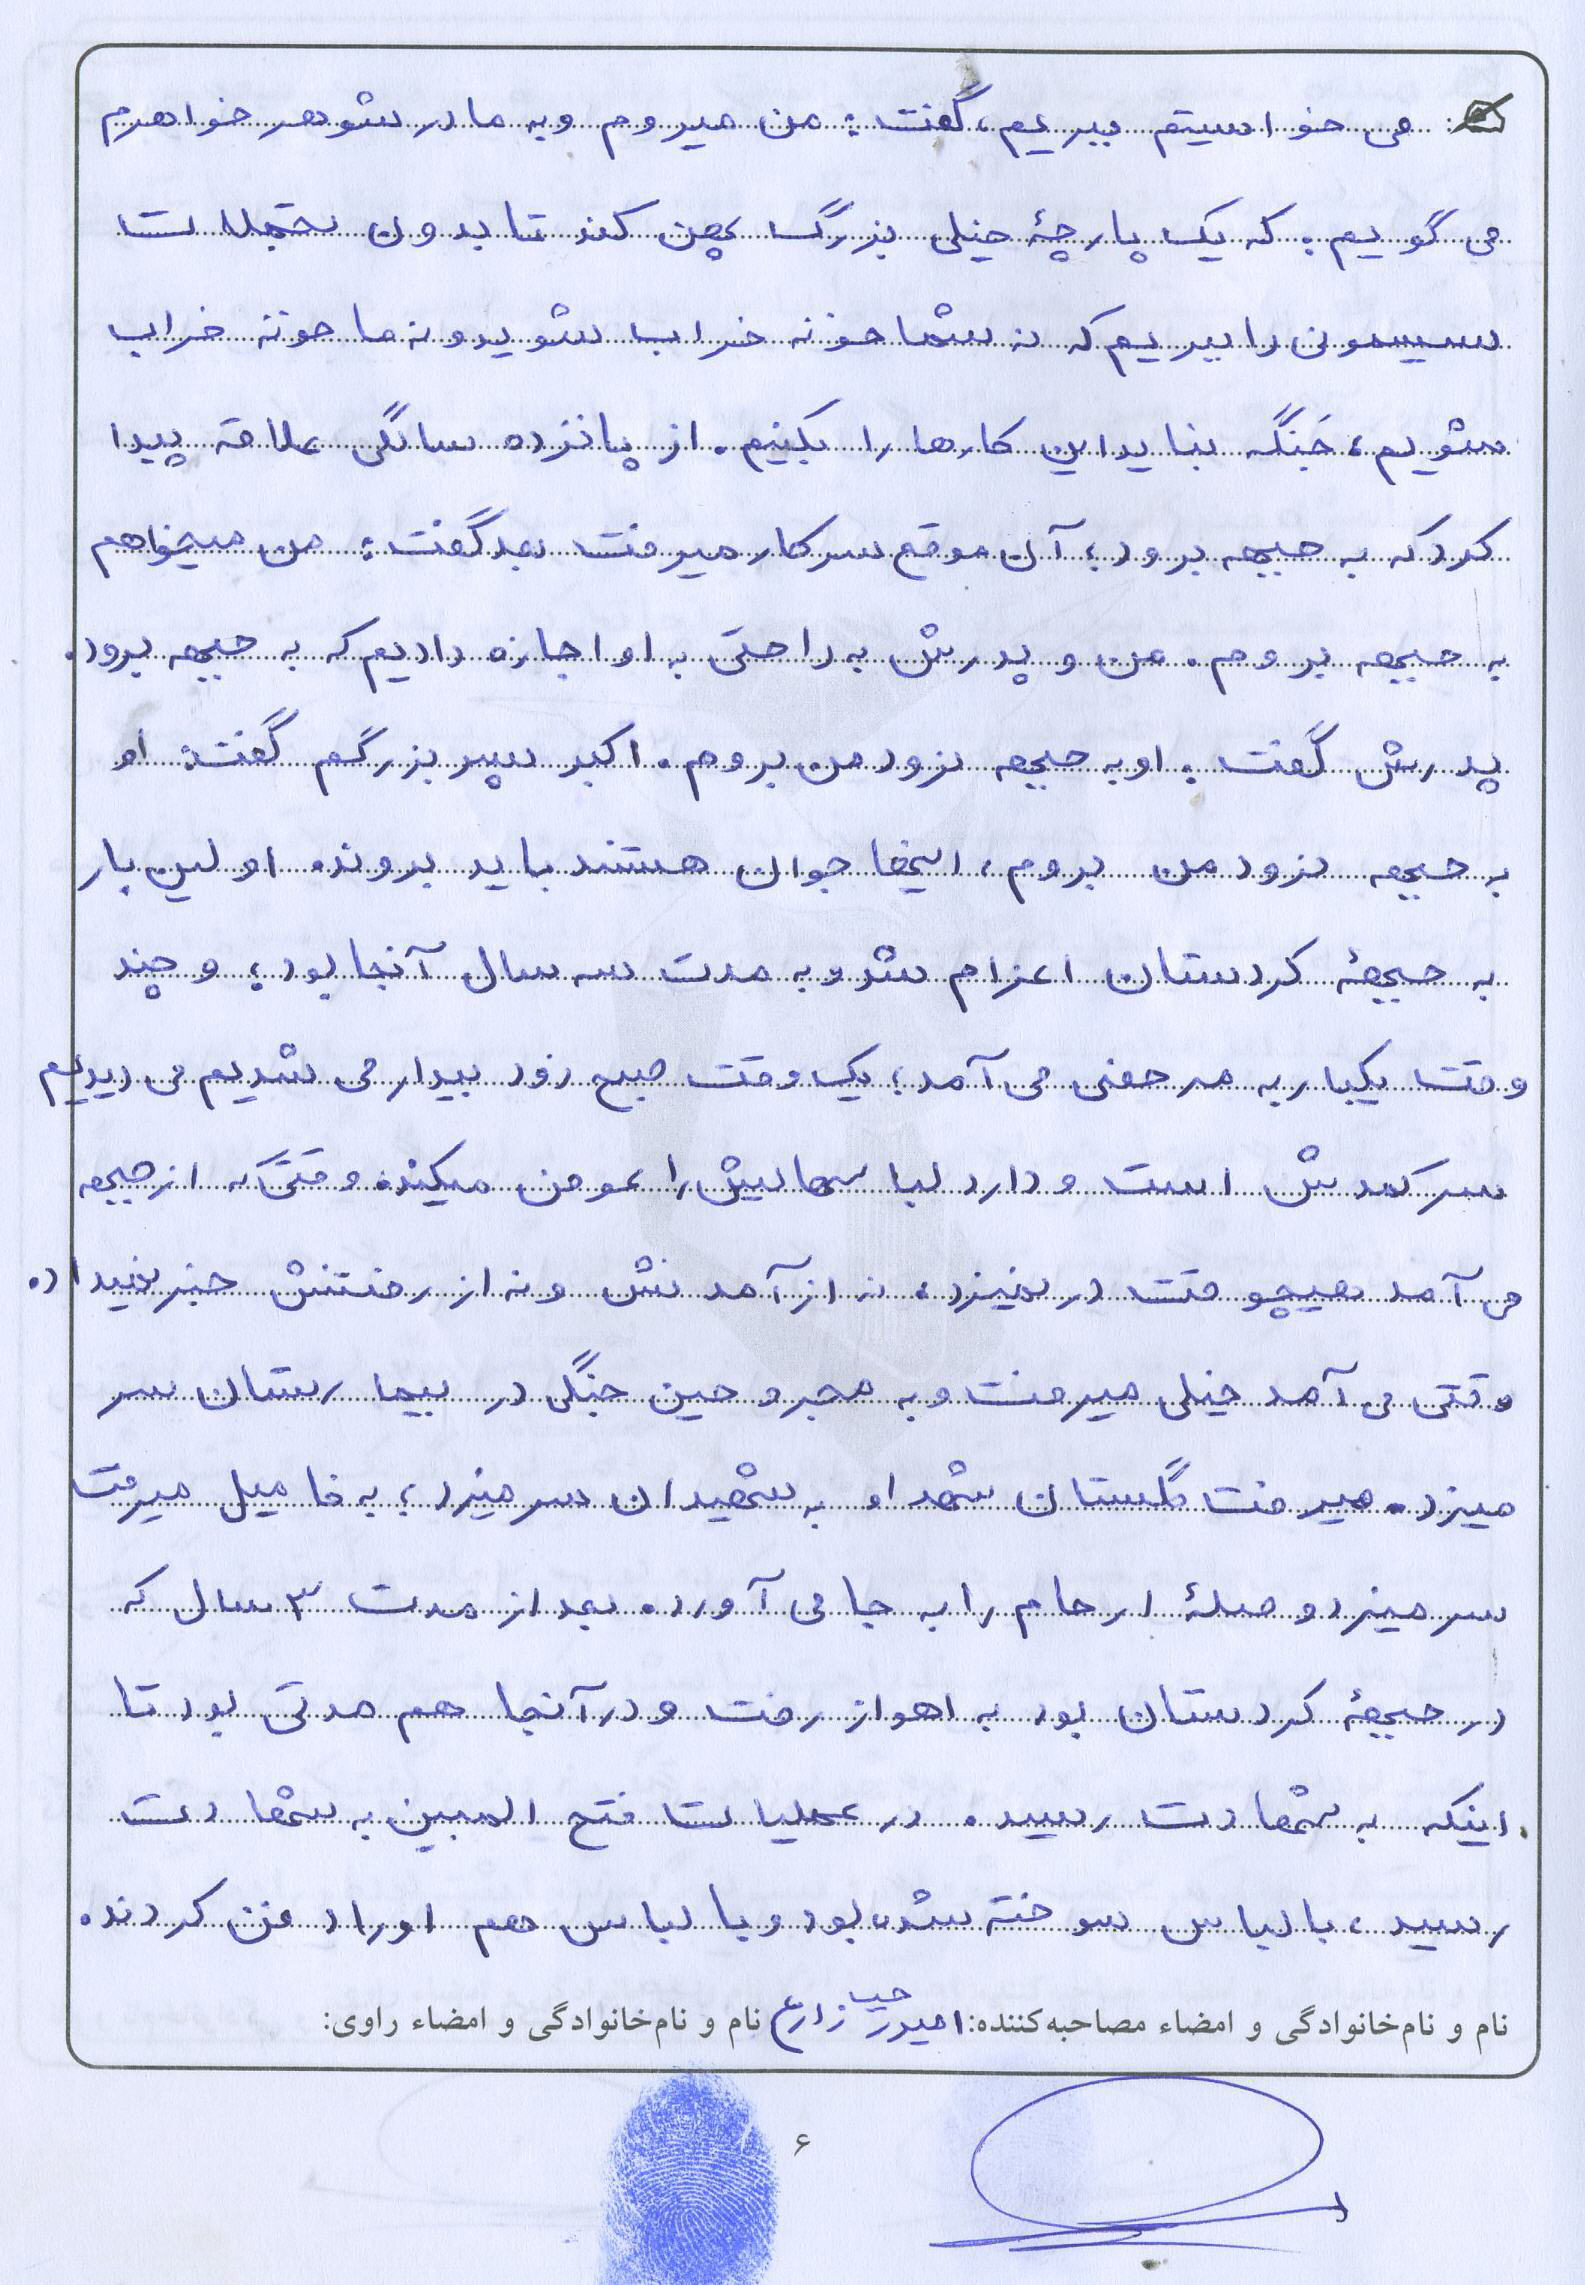 می خواسیتم ببریم، گفت: من میروم وبه مادر شوهر خواهرم
می گویم: که یک پارچهٔ خیلی بزرگ پهن کند تا بدون تجملات
سیسمونی را ببریم که نه شما حونه خراب شوید ونه ما حونه خراب
شویم، جنگه نباید این کارها را بکنیم. از پانزده سالگی علاقه پیدا
کرد که به جبهه برود؛ آن موقع سرکار میرفت بعد گفت: من میخواهم
به جبهه بروم. من و پدرش به راحتی به او اجازه دادیم که به جبهه برود.
پدرش گفت: او به جبهه نرود من بروم. اکبر پسر بزرگم گفت: او
به جبهه نرود من بروم، اینها جوان هستند باید بروند. اولین بار
به جبههٔ کردستان اعزام شد و به مدت سه سال آنجا بود؛ و چند
وقت یکبار به مرخصی می آمد؛ یک وقت صبح زود بیدار می شدیم می دیدیم
سر کمدش است و دارد لباسهایش را عوض میکند. وقتی که از جبهه
می آمد هیچوقت در نمیزد، نه از آمدنش و نه از رفتنش خبر نمیداد.
وقتی می آمد خیلی میرفت و به مجروحین جنگی در بیمارستان سر
میزد. میرفت گلستان شهدا و به شهیدان سر میزد؛ به فامیل میرفت
سر میزد و صلهٔ ارحام را به جا می آورد. بعد از مدت ۳ سال که
در جبههٔ کردستان بود به اهواز رفت و در آنجا هم مدتی بود تا
اینکه به شهادت رسید. در عملیات فتح المبین به شهادت
رسید، با لباس سوخته شده بود و با لباس هم او را دفن کردند.
نام و نام‌خانوادگی و امضاء مصاحبه‌کننده: زارع نام و نام‌خانوادگی و امضاء راوی:
۶